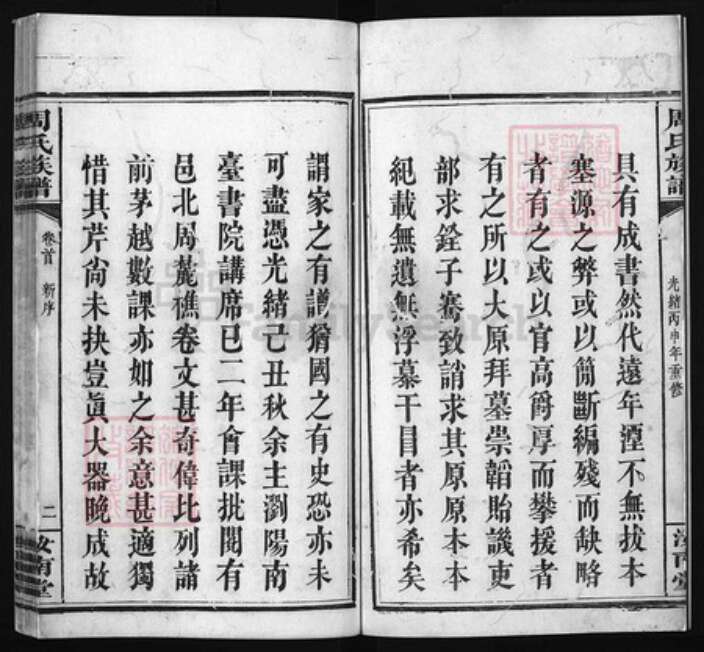 周氏族譜
光緒丙申年重修
汝南堂
具有成書然代遠年湮不無拔本
塞源之弊或以簡斷編殘而缺略
者有之或以官高爵厚而攀援者
有之所以大原拜墓崇韜貽譏吏
部求銓子騫致誚求其原原本本
紀載無遺無浮慕干目者亦希矣
謂家之有譜猶國之有史恐亦未
可盡憑光緒己丑秋余主瀏陽南
臺書院講席巳二年會課批閱有
邑北周麓樵卷文甚奇偉比列諸
前茅越數課亦如之余意甚適獨
惜其芹尙未抉豈眞大器晚成故
周氏族譜
卷首 新序
二
汝南堂
FamilySearch